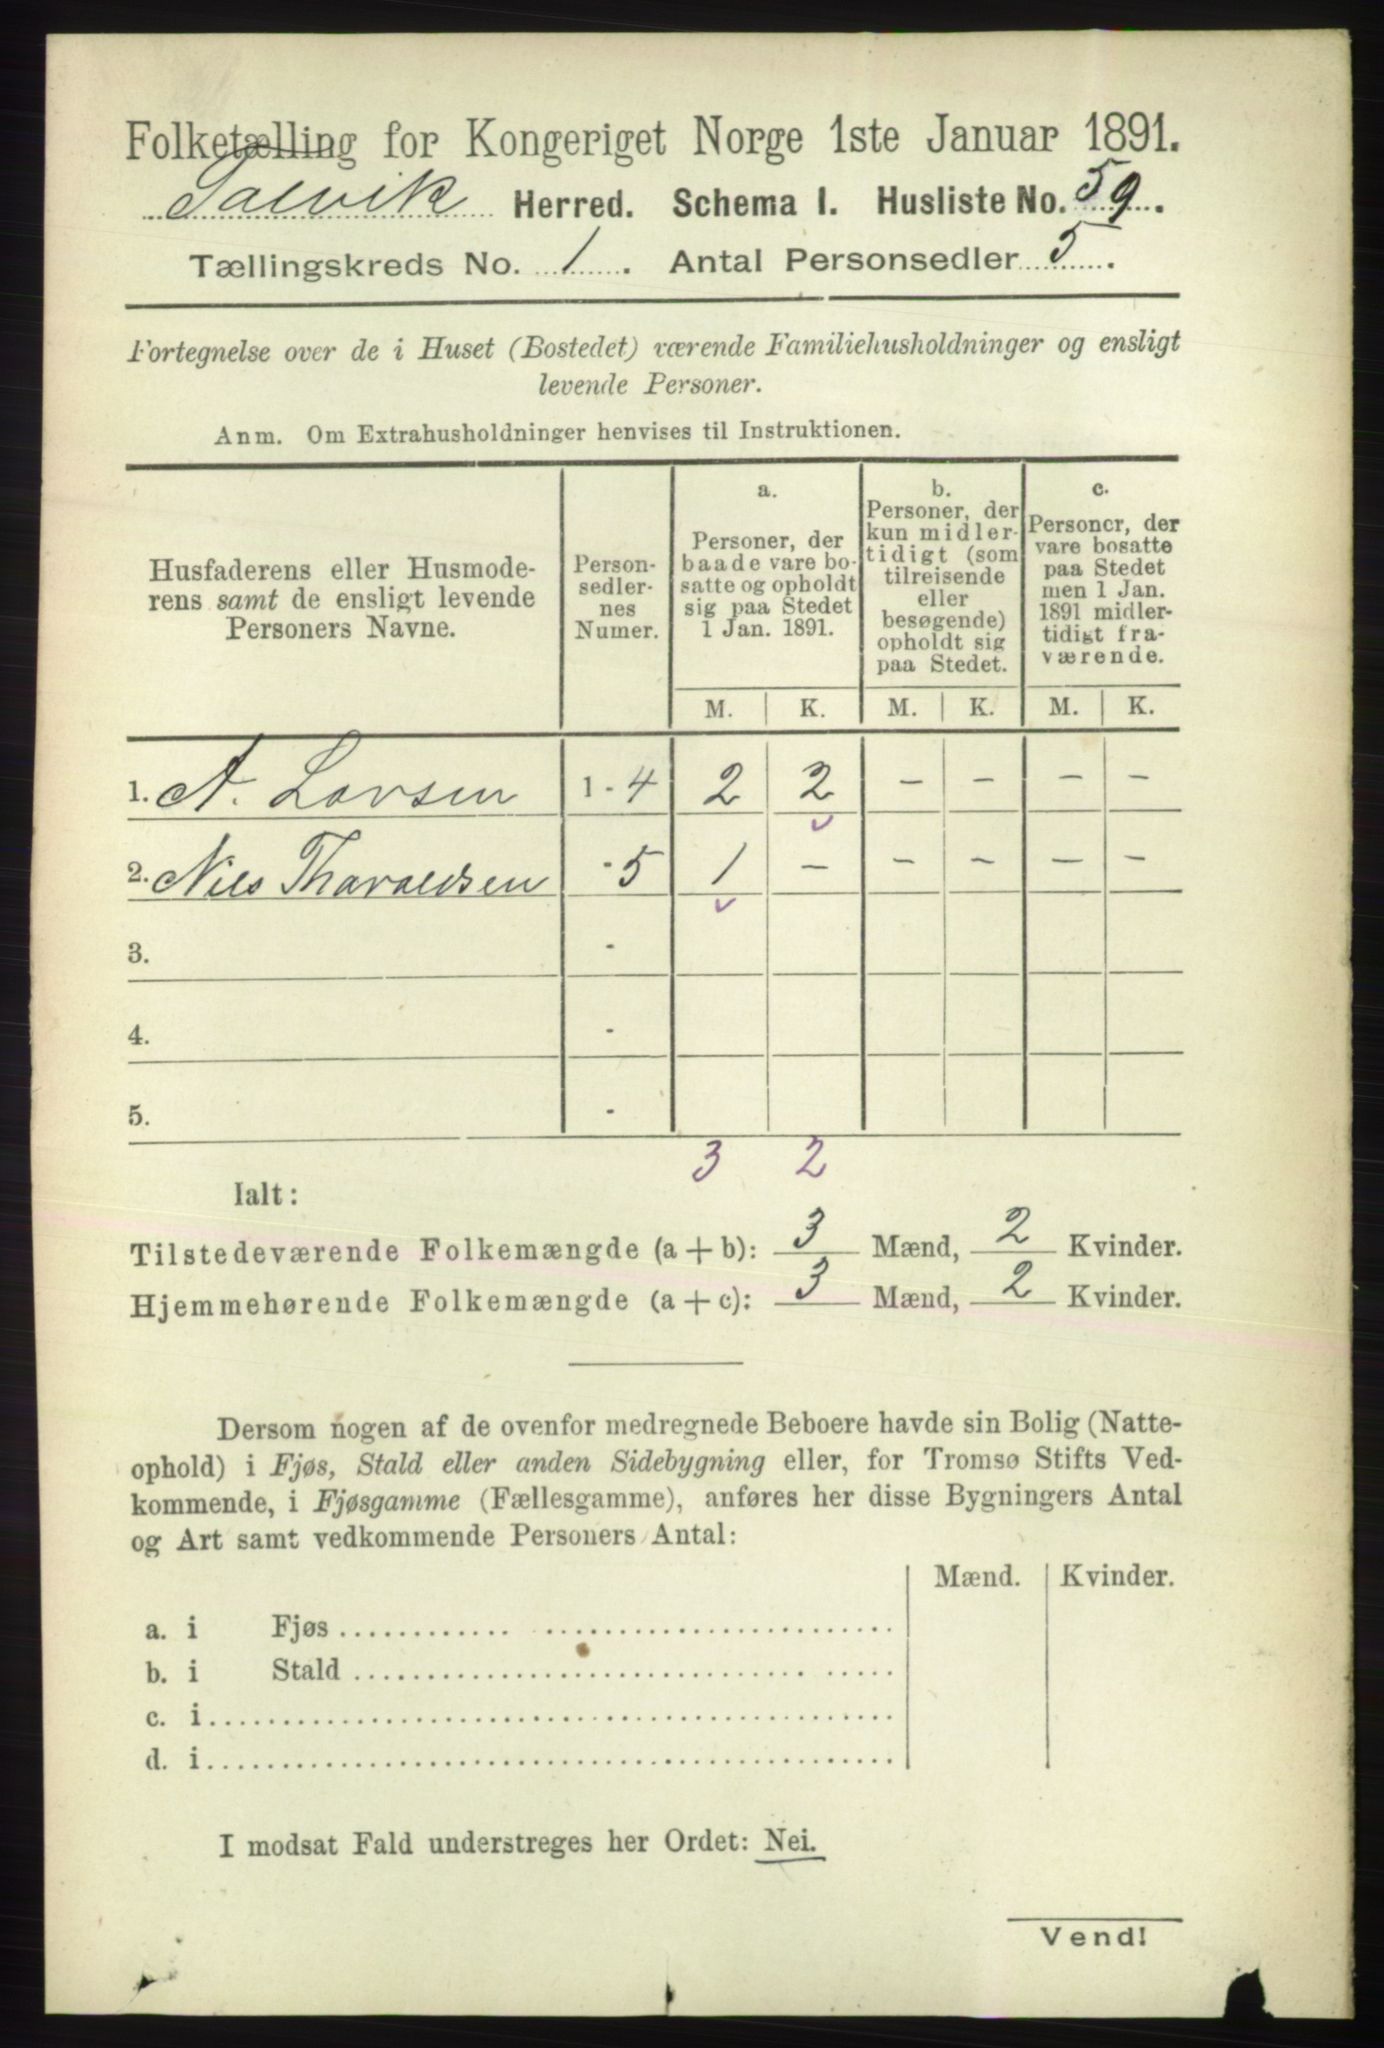 Folketælling for Kongeriget Norge 1ste Januar 1891.
Talvik Herred. Schema I. Husliste No. 59.
Tællingskreds No. 1. Antal Personsedler 5.
Fortegnelse over de i Huset (Bostedet) værende Familiehusholdninger og ensligt
levende Personer.
Anm. Om Extrahusholdninger henvises til Instruktionen.
Husfaderens eller Husmode-
rens samt de ensligt levende
Personers Navne.
Person-
sedler-
nes
Numer.
a.
Personer, der
baade vare bo-
satte og opholdt
sig paa Stedet
1 Jan. 1891.
b.
Personer, der
kun midler-
tidigt (som
tilreisende
eller
besøgende)
opholdt sig
paa Stedet.
c.
Personer, der
vare bosatte
paa Stedet
men 1 Jan.
1891 midler-
tidigt fra-
værende.
M. K. M. K. M. K.
1. A. Larsen 1 - 4 2 2 - - - -
2. Nils Tharaldsen - 5 1 - - - - -
3. -
4. -
5. -
3 2
Ialt:
Tilstedeværende Folkemængde (a + b): 3 Mænd, 2 Kvinder.
Hjemmehørende Folkemængde (a + c): 3 Mænd, 2 Kvinder.
Dersom nogen af de ovenfor medregnede Beboere havde sin Bolig (Natte-
ophold) i Fjøs, Stald eller anden Sidebygning eller, for Tromsø Stifts Ved-
kommende, i Fjøsgamme (Fællesgamme), anføres her disse Bygningers Antal
og Art samt vedkommende Personers Antal:
Mænd. Kvinder.
a. i Fjøs
b. i Stald
c. i
d. i
I modsat Fald understreges her Ordet: Nei.
Vend!